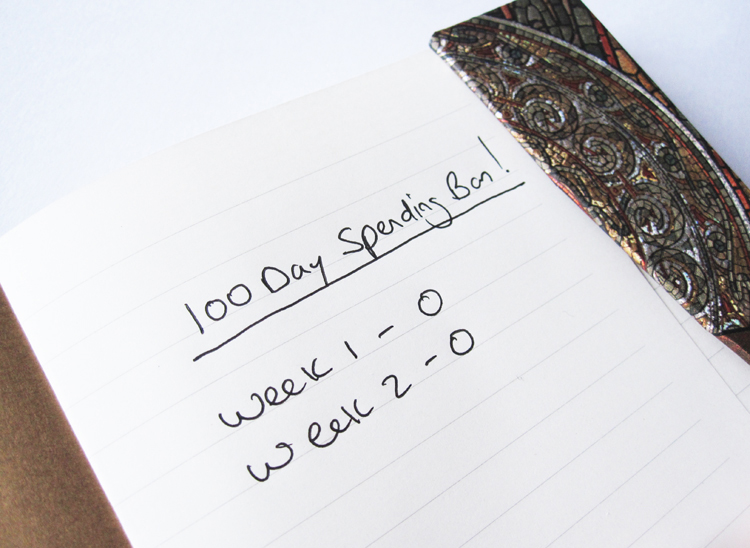 100 Day Spending Ban!
Week 1 - 0
Week 2 - 0